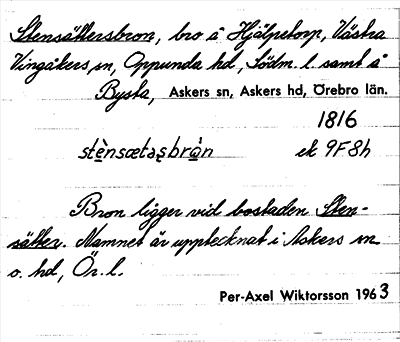 Stensättersbron, bro å Hjälpetorp, Västra
Vingåkers sn, Oppunda hd, Södm. l. samt å
Bysta, Askers sn, Askers hd, Örebro län.
1816
stènsætəʂbrån ek 9F8h
Bron ligger vid bostaden Sten-
sätter. Namnet är upptecknat i Askers sn
o. hd, Ör. l.
Per-Axel Wiktorsson 1963